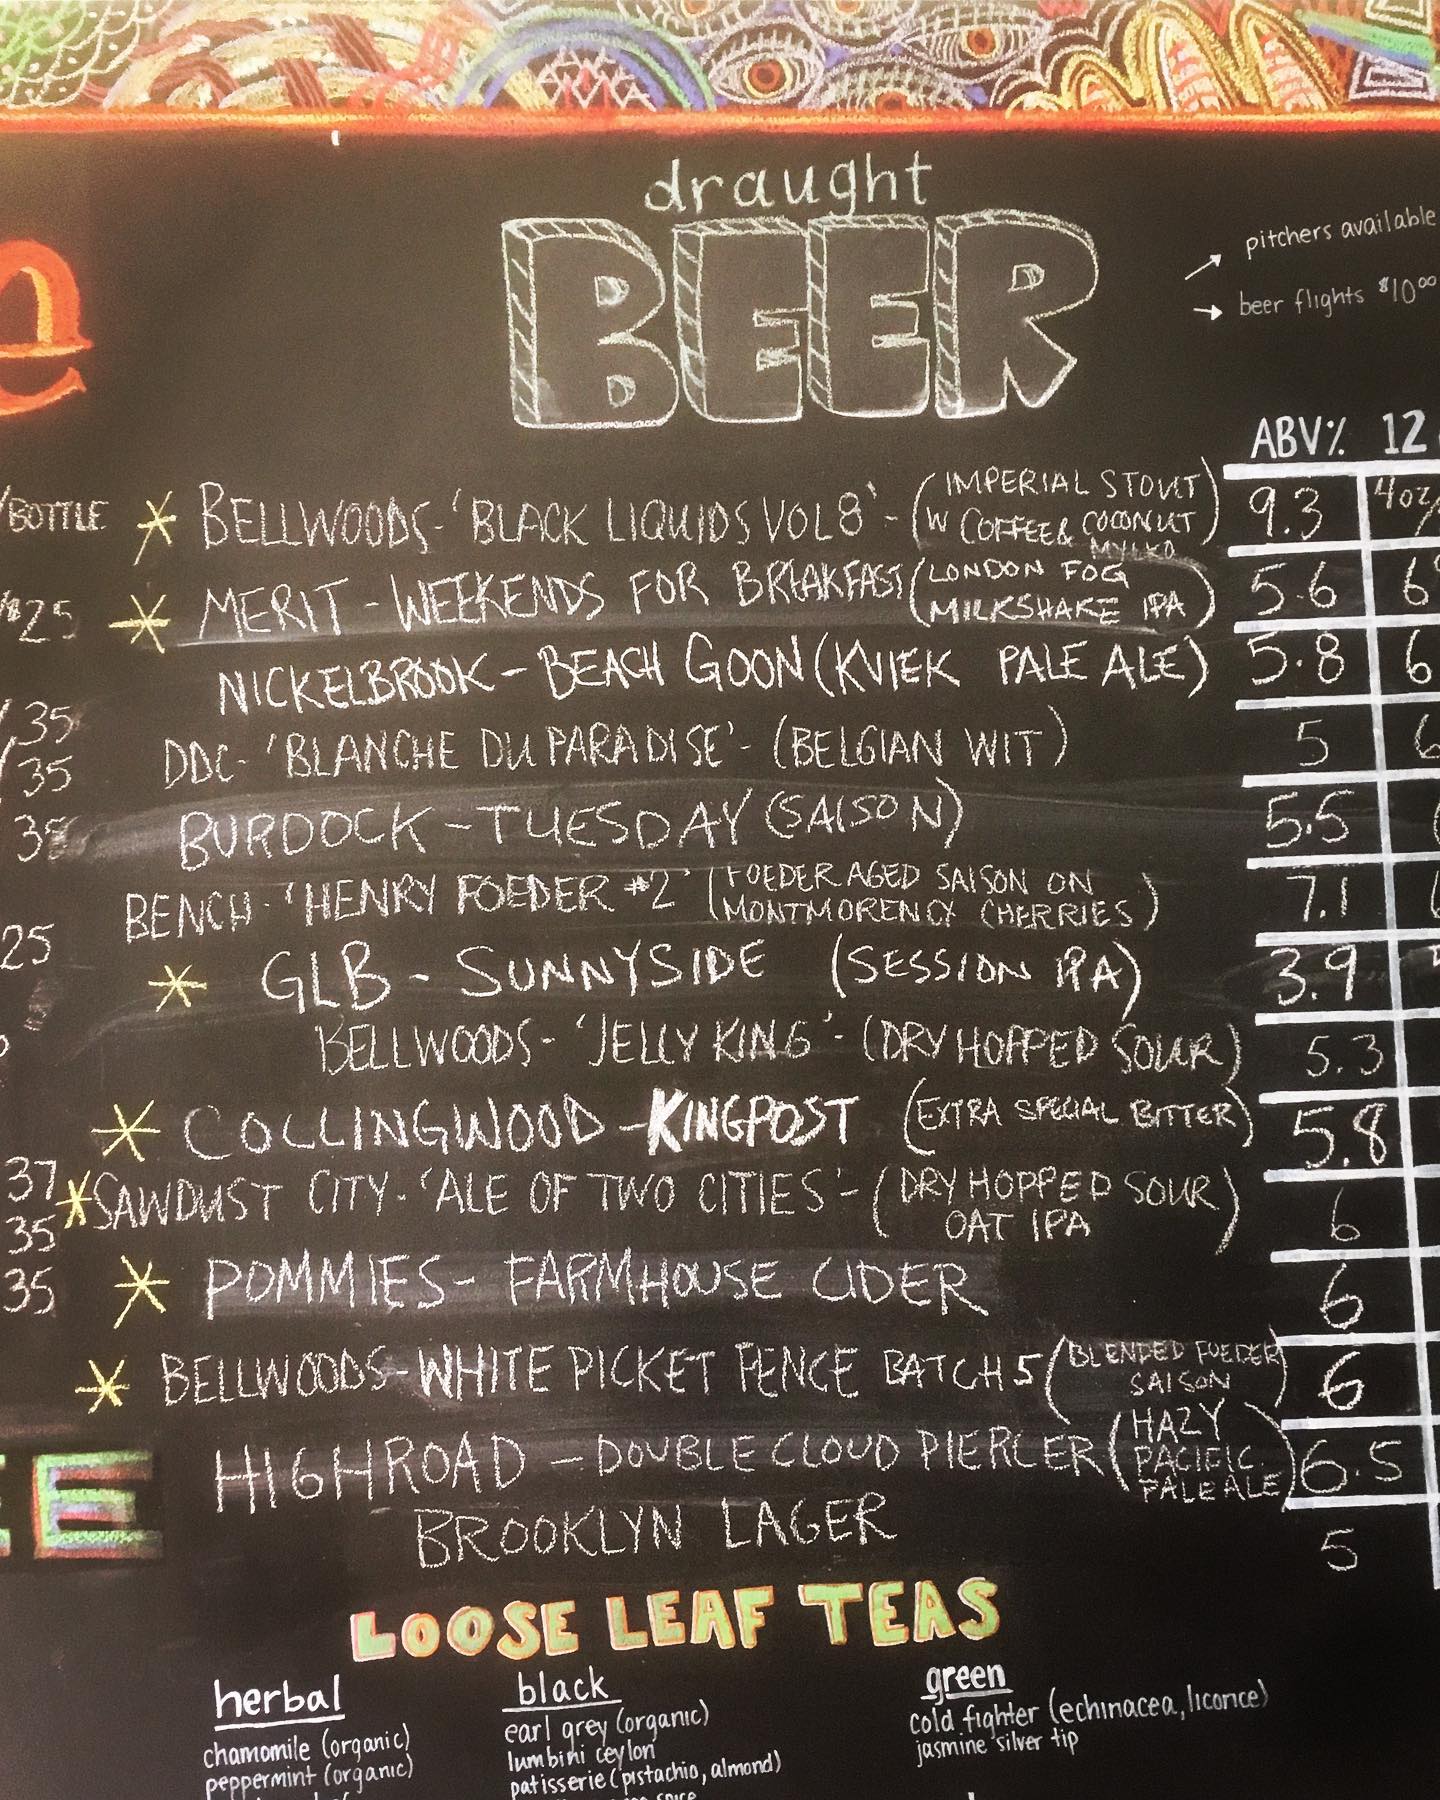 draught
BEER
pitchers available
beer flights $10.00
ABV% 12
/BOTTLE
* BELLWOODS - 'BLACK LIQUIDS VOL 8' - (IMPERIAL STOUT
W COFFEE & COCONUT
MYLKD) 9.3 4oz/
* MERIT - WEEKENDS FOR BREAKFAST (LONDON FOG
MILKSHAKE IPA) 5.6 6
/$25
NICKELBROOK - BEACH GOON (KVIEK PALE ALE) 5.8 6
/35
DDC - 'BLANCHE DU PARADISE' - (BELGIAN WIT) 5 6
/35
BURDOCK - TUESDAY (SAISON) 5.5
35
BENCH - 'HENRY FOEDER #2' (FOEDER AGED SAISON ON
MONTMORENCY CHERRIES) 7.1
25
* GLB - SUNNYSIDE (SESSION IPA) 3.9
BELLWOODS - 'JELLY KING' - (DRY HOPPED SOUR) 5.3
* COLLINGWOOD - KINGPOST (EXTRA SPECIAL BITTER) 5.8
37
* SAWDUST CITY - 'ALE OF TWO CITIES' - (DRY HOPPED SOUR
OAT IPA) 6
35
* POMMIES - FARMHOUSE CIDER 6
35
* BELLWOODS - WHITE PICKET FENCE BATCH 5 (BLENDED FOEDER
SAISON) 6
HIGHROAD - DOUBLE CLOUD PIERCER (HAZY
PACIFIC
PALE ALE) 6.5
BROOKLYN LAGER 5
E
LOOSE LEAF TEAS
herbal
chamomile (organic)
peppermint (organic)
black
earl grey (organic)
lumbini ceylon
patisserie (pistachio, almond)
spice
green
cold fighter (echinacea, licorice)
jasmine silver tip